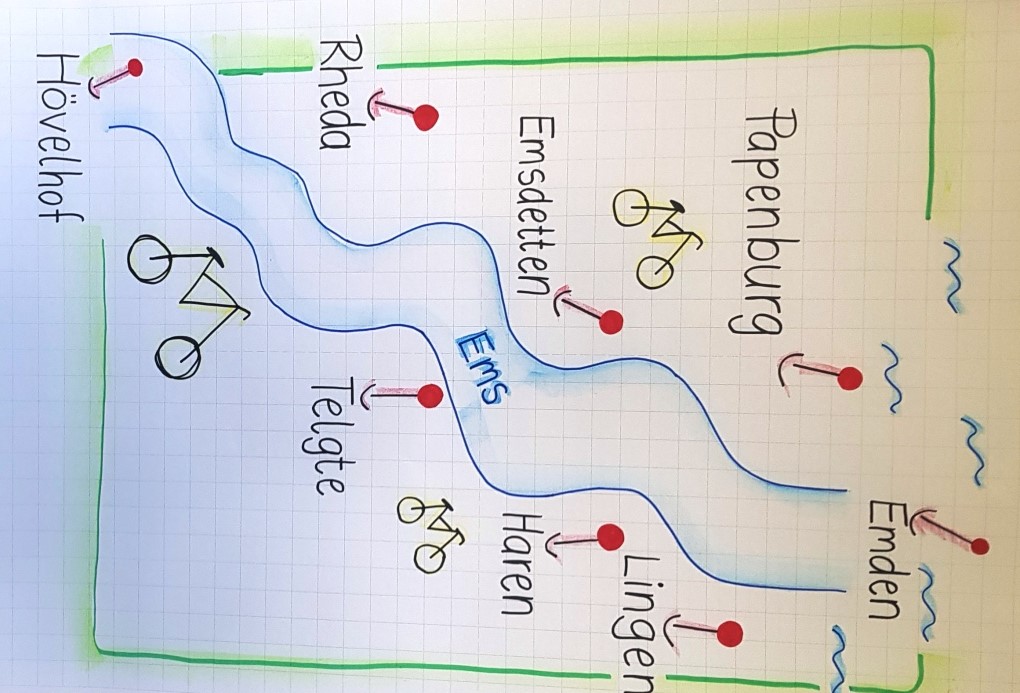 Emden
Papenburg
Lingen
Emsdetten
Haren
Ems
Rheda
Telgte
Hövelhof